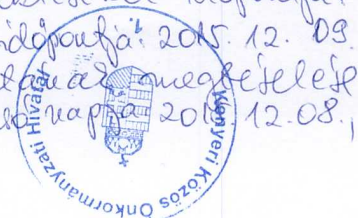 időpontja: 2015. 12. 09
megtételére
napja 2015. 12.08.,
Kenyeri Közös Önkormányzati Hivatal